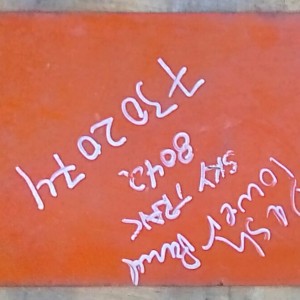 Dash
Lower Panel
SKY TRAK
8042
7302074